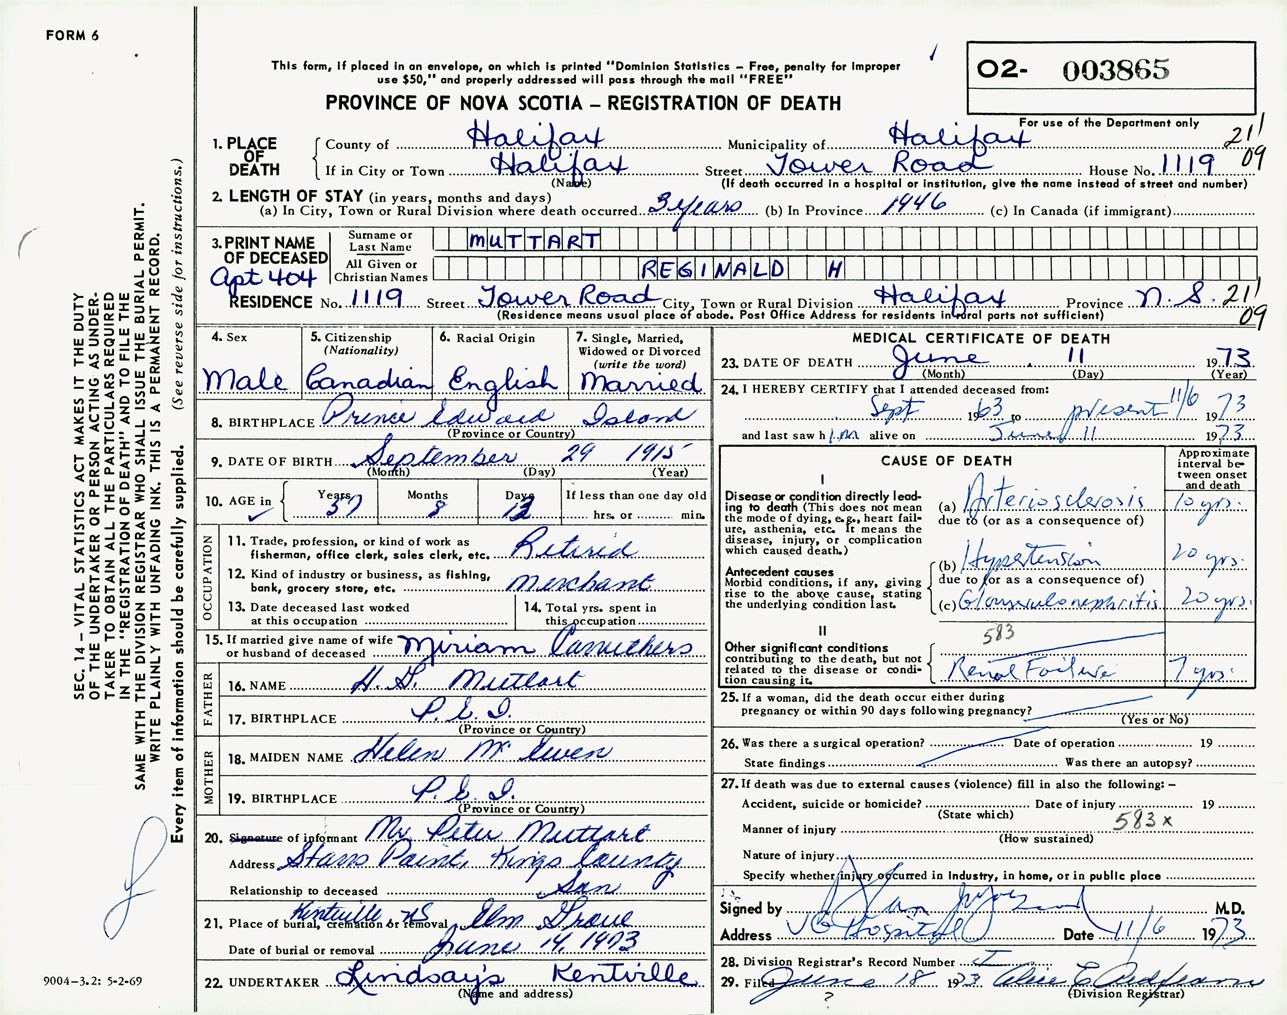 FORM 6
This form, if placed in an envelope, on which is printed "Dominion Statistics – Free, penalty for improper
use $50," and properly addressed will pass through the mail "FREE"
PROVINCE OF NOVA SCOTIA – REGISTRATION OF DEATH
O2- 003865
For use of the Department only
SEC. 14 – VITAL STATISTICS ACT MAKES IT THE DUTY
OF THE UNDERTAKER OR PERSON ACTING AS UNDER-
TAKER TO OBTAIN ALL THE PARTICULARS REQUIRED
IN THE "REGISTRATION OF DEATH" AND TO FILE THE
SAME WITH THE DIVISION REGISTRAR WHO SHALL ISSUE THE BURIAL PERMIT.
WRITE PLAINLY WITH UNFADING INK. THIS IS A PERMANENT RECORD.
Every item of information should be carefully supplied. (See reverse side for instructions.)
1. PLACE OF DEATH
County of Halifax Municipality of Halifax 21/
09
If in City or Town Halifax Street Tower Road House No. 1119
(Name) (If death occurred in a hospital or institution, give the name instead of street and number)
2. LENGTH OF STAY (in years, months and days)
(a) In City, Town or Rural Division where death occurred 3 years (b) In Province 1946 (c) In Canada (if immigrant)
3. PRINT NAME OF DECEASED
Surname or Last Name MUTTART
All Given or Christian Names REGINALD H
Apt 404
RESIDENCE No. 1119 Street Tower Road City, Town or Rural Division Halifax Province N.S. 21/
09
(Residence means usual place of abode. Post Office Address for residents in rural parts not sufficient)
4. Sex Male
5. Citizenship (Nationality) Canadian
6. Racial Origin English
7. Single, Married, Widowed or Divorced (write the word) Married
8. BIRTHPLACE Prince Edward Island
(Province or Country)
9. DATE OF BIRTH September 29 1915
(Month) (Day) (Year)
10. AGE in Years 57 Months 8 Days 13 If less than one day old
hrs. or min.
OCCUPATION
11. Trade, profession, or kind of work as fisherman, office clerk, sales clerk, etc. Retired
12. Kind of industry or business, as fishing, bank, grocery store, etc. Merchant
13. Date deceased last worked at this occupation
14. Total yrs. spent in this occupation
15. If married give name of wife or husband of deceased Miriam Carruthers
FATHER
16. NAME H. G. Muttart
17. BIRTHPLACE P.E.I.
(Province or Country)
MOTHER
18. MAIDEN NAME Helen McEwen
19. BIRTHPLACE P.E.I.
(Province or Country)
20. Signature of informant Mr Peter Muttart
Address Starrs Point, Kings County
Relationship to deceased Son
21. Place of burial, cremation or removal Kentville NS Elm Grove
Date of burial or removal June 14, 1973
22. UNDERTAKER Lindsay's Kentville
(Name and address)
MEDICAL CERTIFICATE OF DEATH
23. DATE OF DEATH June 11 1973
(Month) (Day) (Year)
24. I HEREBY CERTIFY that I attended deceased from:
Sept 1963 to present 11/6 1973
and last saw him alive on June 11 1973
CAUSE OF DEATH
Approximate interval between onset and death
I
Disease or condition directly lead-
ing to death (This does not mean
the mode of dying, e.g., heart fail-
ure, asthenia, etc. It means the
disease, injury, or complication
which caused death.)
(a) Arteriosclerosis 10 yrs.
due to (or as a consequence of)
Antecedent causes
Morbid conditions, if any, giving
rise to the above cause, stating
the underlying condition last.
(b) Hypertension 20 yrs.
due to (or as a consequence of)
(c) Glomerulonephritis 20 yrs.
583
II
Other significant conditions
contributing to the death, but not
related to the disease or condi-
tion causing it.
Renal Failure 7 yrs.
25. If a woman, did the death occur either during
pregnancy or within 90 days following pregnancy?
(Yes or No)
26. Was there a surgical operation? Date of operation 19
State findings Was there an autopsy?
27. If death was due to external causes (violence) fill in also the following: –
Accident, suicide or homicide? Date of injury 19
(State which)
583x
Manner of injury
(How sustained)
Nature of injury
Specify whether injury occurred in industry, in home, or in public place
Signed by M.D.
Address VG Hospital Date 11/6 1973
28. Division Registrar's Record Number
29. Filed June 18 1973 Alice E
(Division Registrar)
?
9004-3.2: 5-2-69